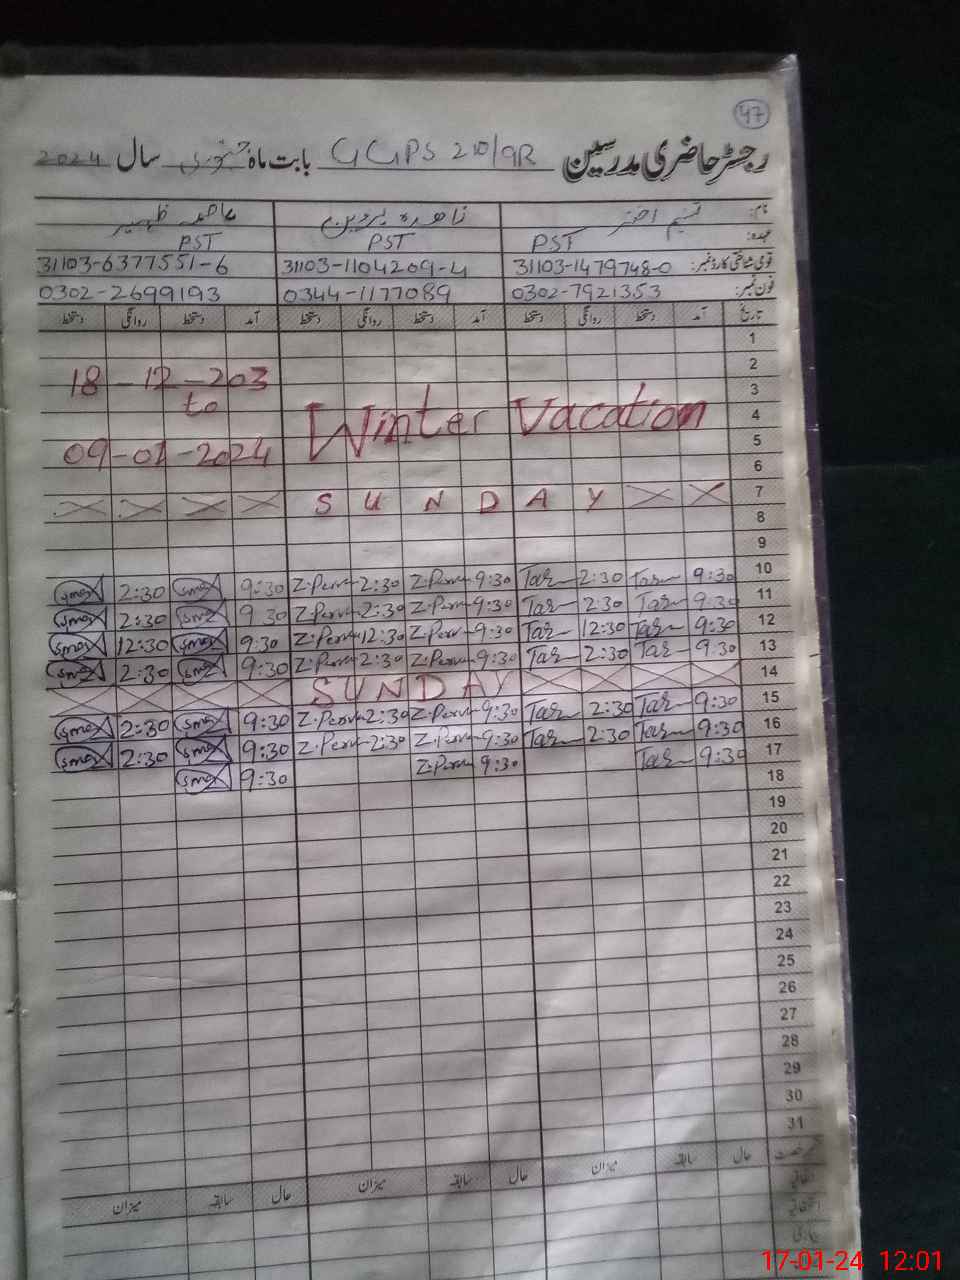 47
رجسٹر حاضری مدرسین GGPS 210/9R بابت ماہ جنوری سال 2024
نام: تسنیم اختر ناھیدہ پروین عاصمہ ظہیر
عہدہ: PST PST PST
قومی شناختی کارڈ نمبر: 31103-1479748-0 31103-1104209-4 31103-6377551-6
فون نمبر: 0302-7921353 0344-1177089 0302-2699193
تاریخ آمد دستخط روانگی دستخط آمد دستخط روانگی دستخط آمد دستخط روانگی دستخط
1
2
18-12-203
3
to
4
Winter Vacation
5
09-01-2024
6
7 SUNDAY
8
9
10 9:30 Tas 2:30 Tas 9:30 Z.Perv 2:30 Z.Perv 9:30 smaz 2:30 smaz
11 9:30 Tas 2:30 Tas 9:30 Z.Perv 2:30 Z.Perv 9:30 smaz 2:30 smaz
12 9:30 Tas 12:30 Tas 9:30 Z.Perv 12:30 Z.Perv 9:30 smaz 12:30 smaz
13 9:30 Tas 2:30 Tas 9:30 Z.Perv 2:30 Z.Perv 9:30 smaz 2:30 smaz
14 SUNDAY
15 9:30 Tas 2:30 Tas 9:30 Z.Perv 2:30 Z.Perv 9:30 smaz 2:30 smaz
16 9:30 Tas 2:30 Tas 9:30 Z.Perv 2:30 Z.Perv 9:30 smaz 2:30 smaz
17 9:30 Tas 9:30 Z.Perv 9:30 smaz
18
19
20
21
22
23
24
25
26
27
28
29
30
31
حال سابقہ میزان حال سابقہ میزان حال سابقہ میزان
17-01-24 12:01